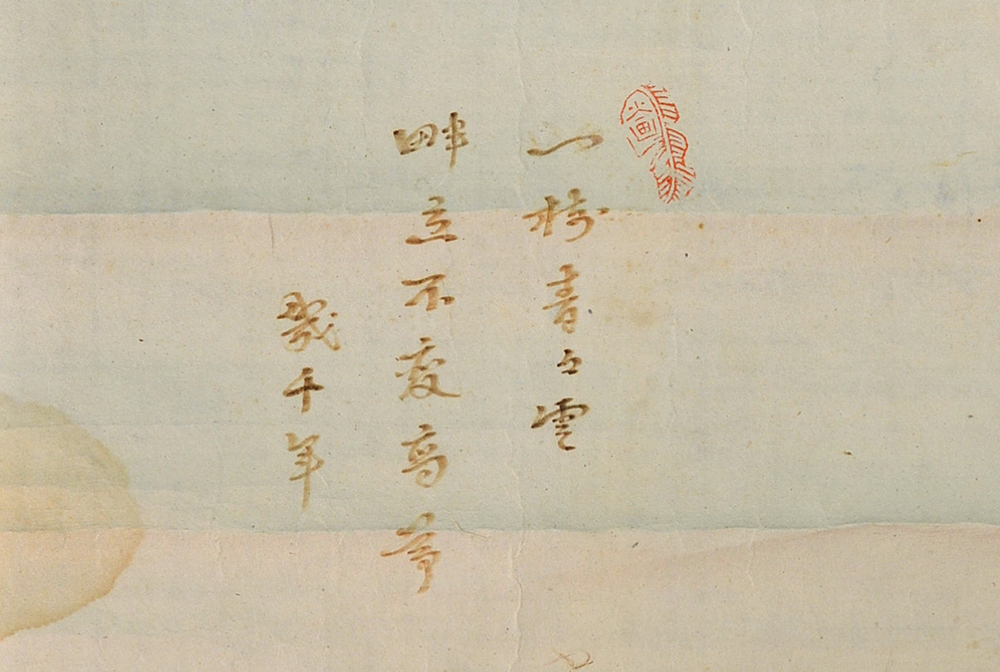 一樹青々雲
畔立不変高節
幾千年